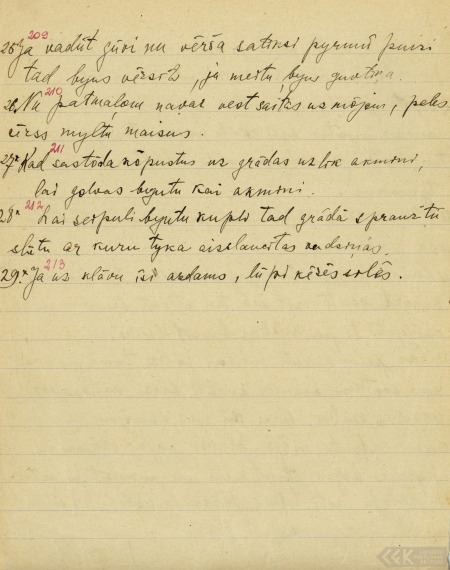 209
25 Ja vadūt gūvi nu vērša satiksi pyrmū puisi
tad byus vērsits, ja meitu, byus guvteņa.
210
26. Nu patmalom navar vest saites uz mōjom, peles
ēross myltu maisus.
211
27.x Kad sastōda kōpustus uz grādas uzlik akmini,
lai golvas byutu kai akmini.
212
28.x Lai seipuli byutu kupli tad grādā sprauztu
slūtu ar kuru tyka aizslaucītas vadziņas.
213
29.x Ja uz klāvu īsi azdams, lūpi kēsēs solēs.